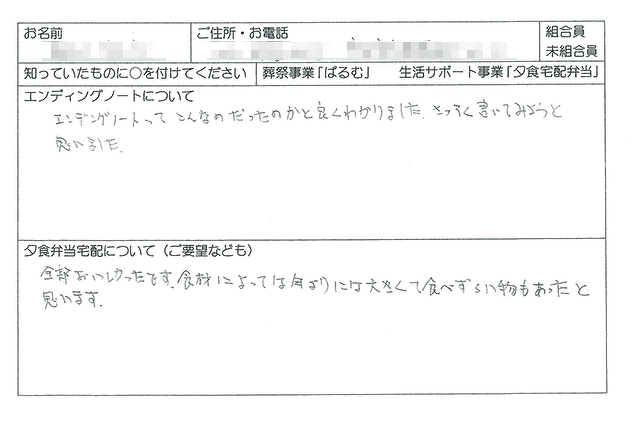 お名前
ご住所・お電話
組合員
未組合員
知っていたものに○を付けてください
葬祭事業「ぱるむ」 生活サポート事業「夕食宅配弁当」
エンディングノートについて
エンデングノートって こんなのだったのかと良くわかりました。さっそく書いてみようと
思いました。
夕食弁当宅配について（ご要望なども）
全部おいしかったです。食材によっては年よりには大きくて食べずらい物もあったと
思います。